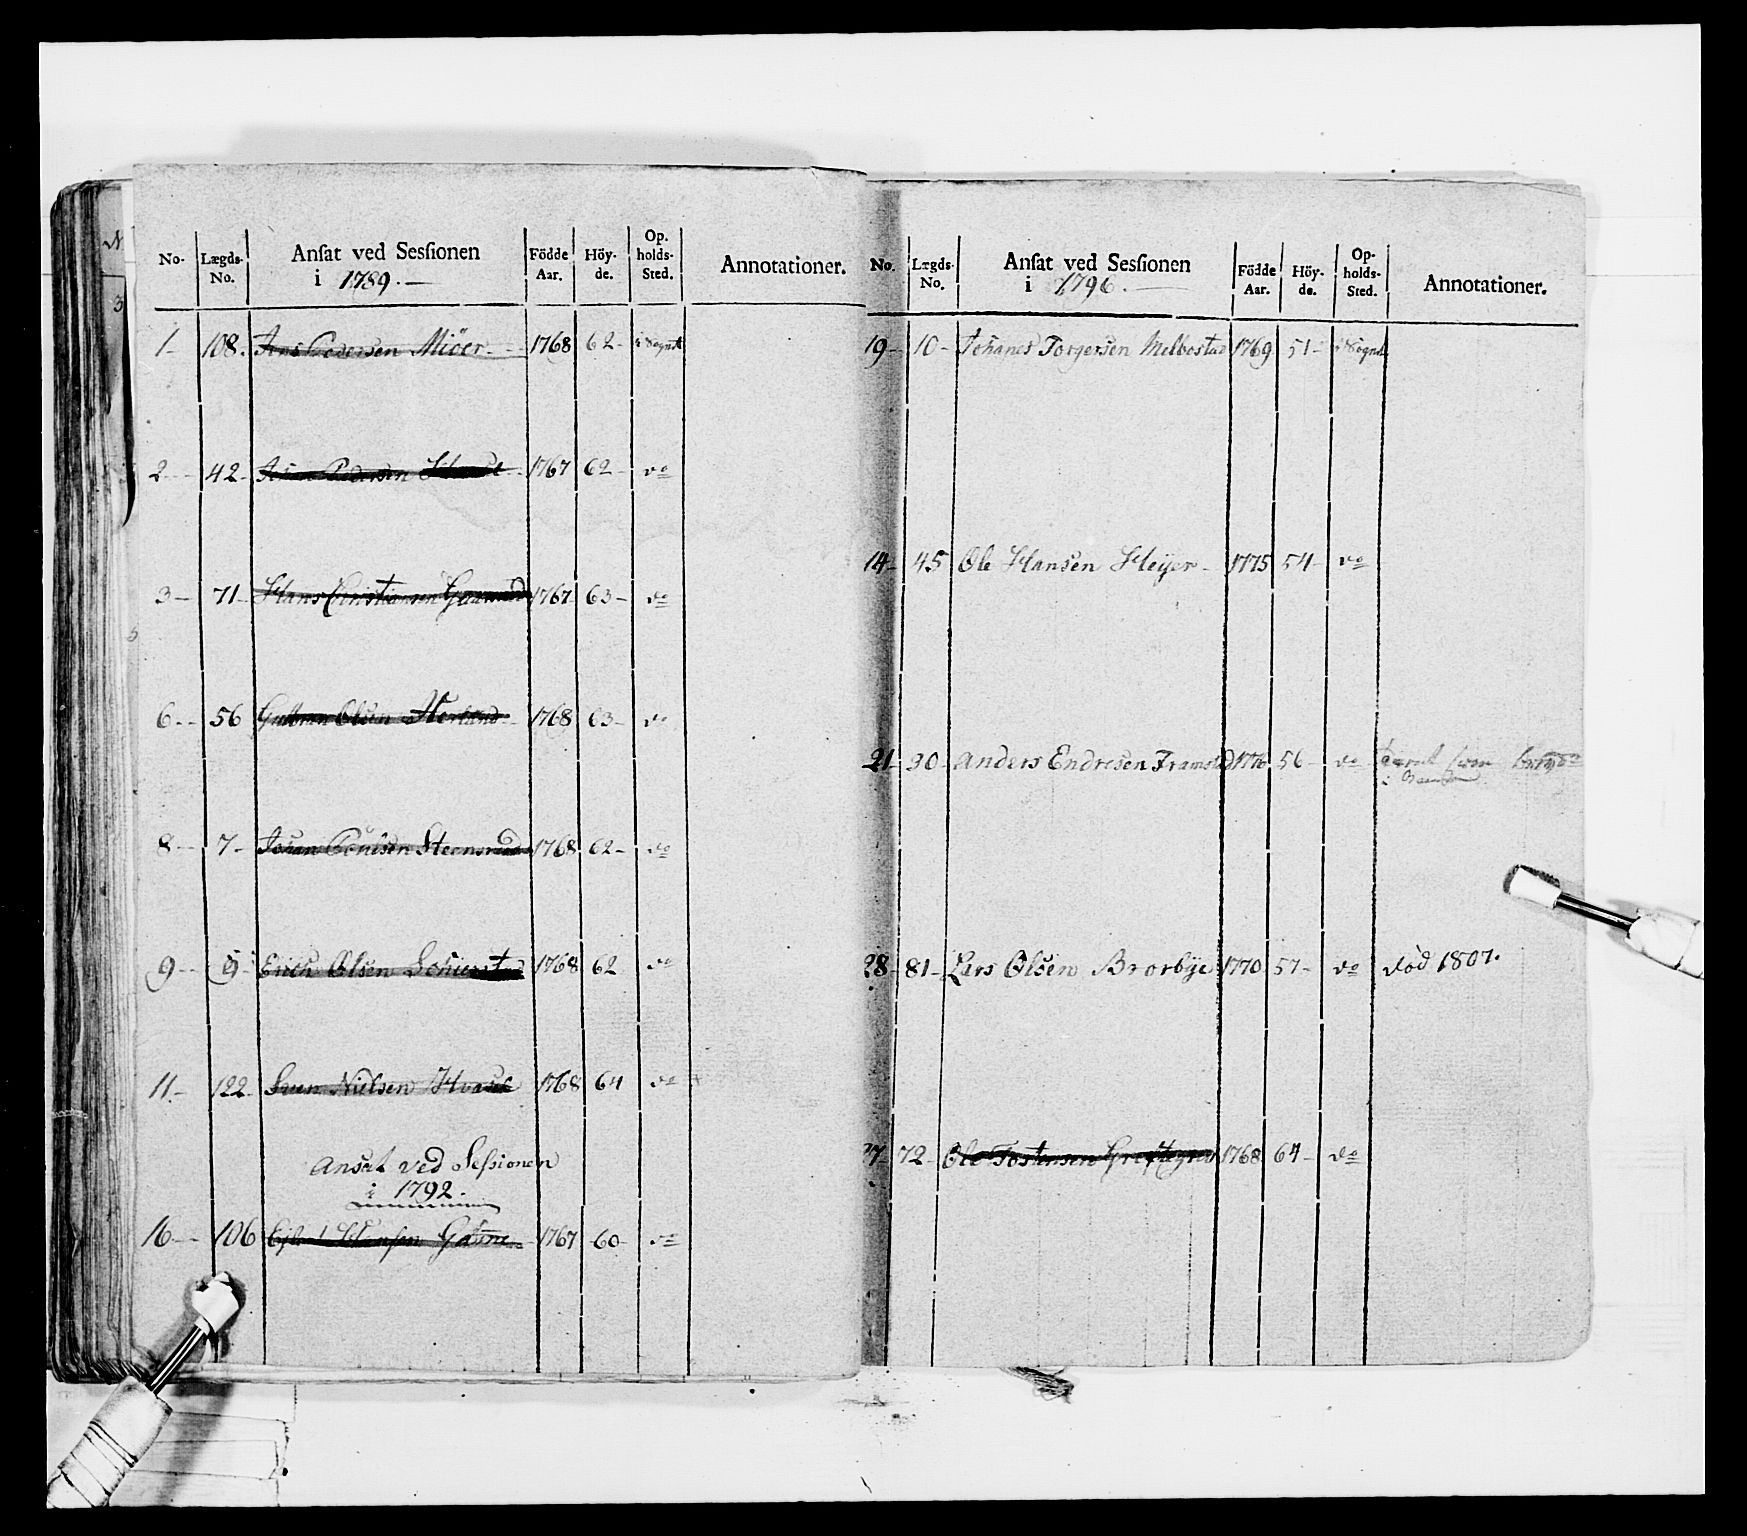 No. Lægds-No. Ansat ved Sessionen i 1789. Födde Aar. Höy-de. Op-holds-Sted. Annotationer.
1- 108. Jens Pedersen Miöer 1768 62- i Sognet
2- 42- Pedersen 1767 62- do
3- 71- Hans Christiansen 1767 63- do
6- 56 Gulbran Olsen 1768 63- do
8- 7- Johan Poulsen Steensrud 1768 62- do
9- 9- Erich Olsen 1768 62 do
11- 122- Sven Nielsen 1768 64 do
Ansat ved Sessionen
i 1792.
16- 106 Hansen 1767 60- do
No. Lægds-No. Ansat ved Sessionen i 1796. Födde Aar. Höy-de. Op-holds-Sted. Annotationer.
19- 10- Johanes Torgersen Melbostad 1769 51- i Sognet
14- 45 Ole Hansen Heyer- 1775 54- do
21- 30- Anders Endresen Framstad 1770 56- do
28- 81- Lars Olsen Brorbye 1770 57- do död 1807.
72- Ole Tostensen 1768 64- do